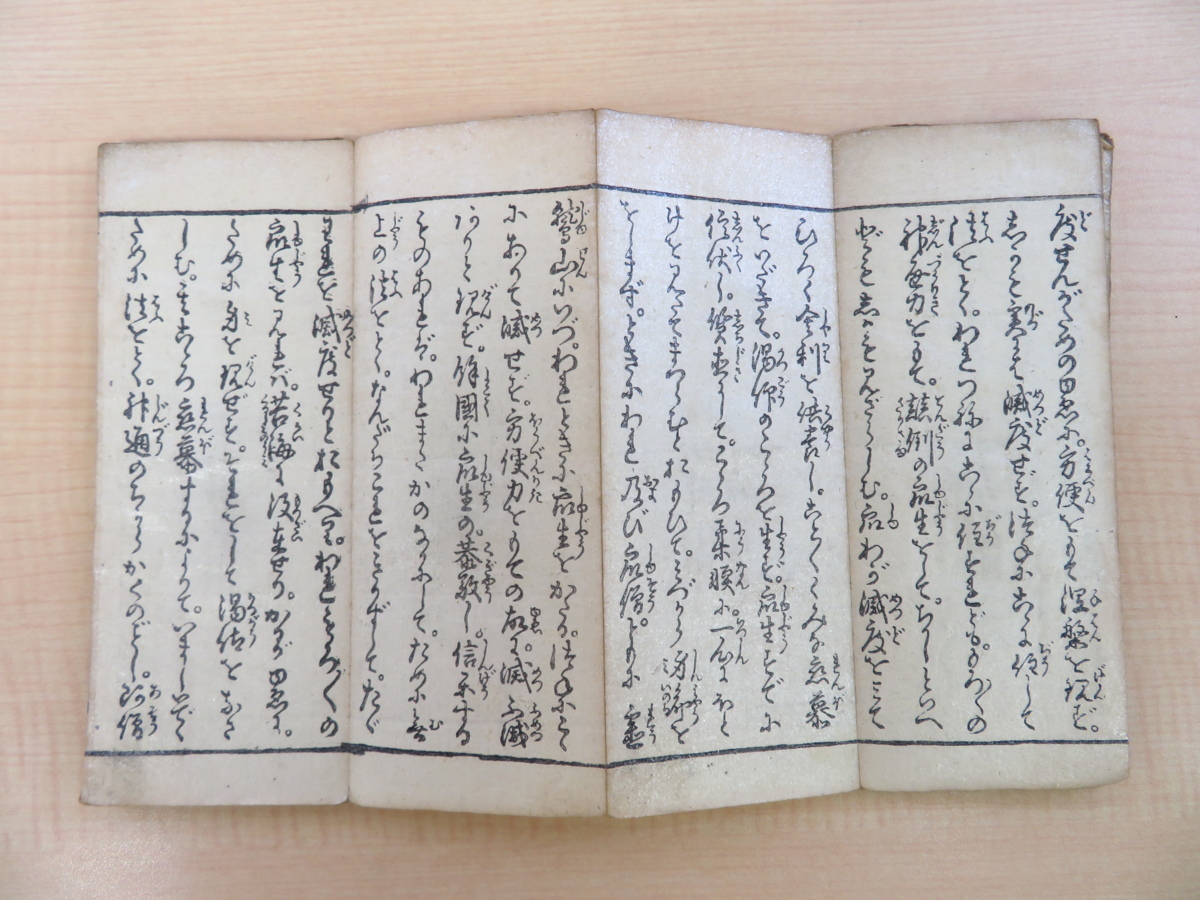 度せんがための由ゑに方便をもて涅槃を現ず。
しかも実には滅度せず。つねにこゝに住して
法をとく。われつねにこゝに住すれどももろ〳〵の
神通力をもて。顛倒の衆生をして。ちかしといへ
どもしかもみざらしむ。衆わが滅度をみて
ひろく舎利を供養し。こと〴〵くみな恋慕
をいだきて。渇仰のこゝろを生ず。衆生すでに
信伏し。質直にして。こゝろ柔軟に一心にほと
けをみたてまつらむとおもひて。みづから身命を
をしまず。ときにわれ及び衆僧。ともに霊
鷲山にいづ。われときに衆生をかたる。つねにこゝ
にありて滅せず。方便力をもての故に滅不滅
ありと現ず。余国に衆生の。恭敬し。信楽する
ものあれば。われまたかのなかにして。ために無
上の法をとく。なんぢらこれをきかずして。たゞ
われを滅度せりとおもへり。われもろ〳〵の
衆生をみれば。苦海に没在せり。かるが由ゑに。
ために身を現ぜず。それをして渇仰をなさ
しむ。そのこゝろ恋慕するによりて。いましいでゝ
ために法をとく。神通のちからかくのごとし。阿僧